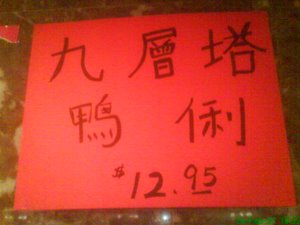 九層塔
鴨俐
$12.95